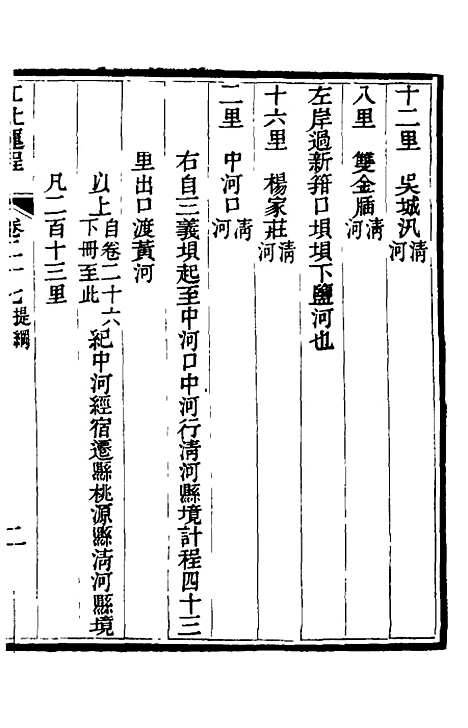 十二里　吳城汛清河
八里　雙金牐清河
左岸過新箝口垻垻下鹽河也
十六里　楊家莊清河
二里　中河口清河
右自三義垻起至中河口中河行清河縣境計程四十三
里出口渡黃河
以上自卷二十六下冊至此紀中河經宿遷縣桃源縣清河縣境
凡二百十三里
程　卷二十七提綱　二